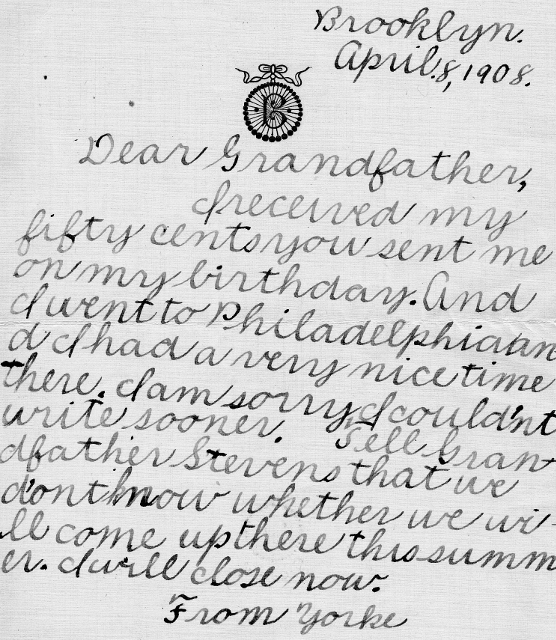 Brooklyn.
April.8,1908.
B
Dear Grandfather,
I received my
fifty cents you sent me
on my birthday. And
I went to Philadelphia an
d I had a very nice time
there. I am sorry I could'nt
write sooner. Tell Gran
dfather Stevens that we
dont know whether we wi
ll come up there this summ
er. I will close now.
From Yorke